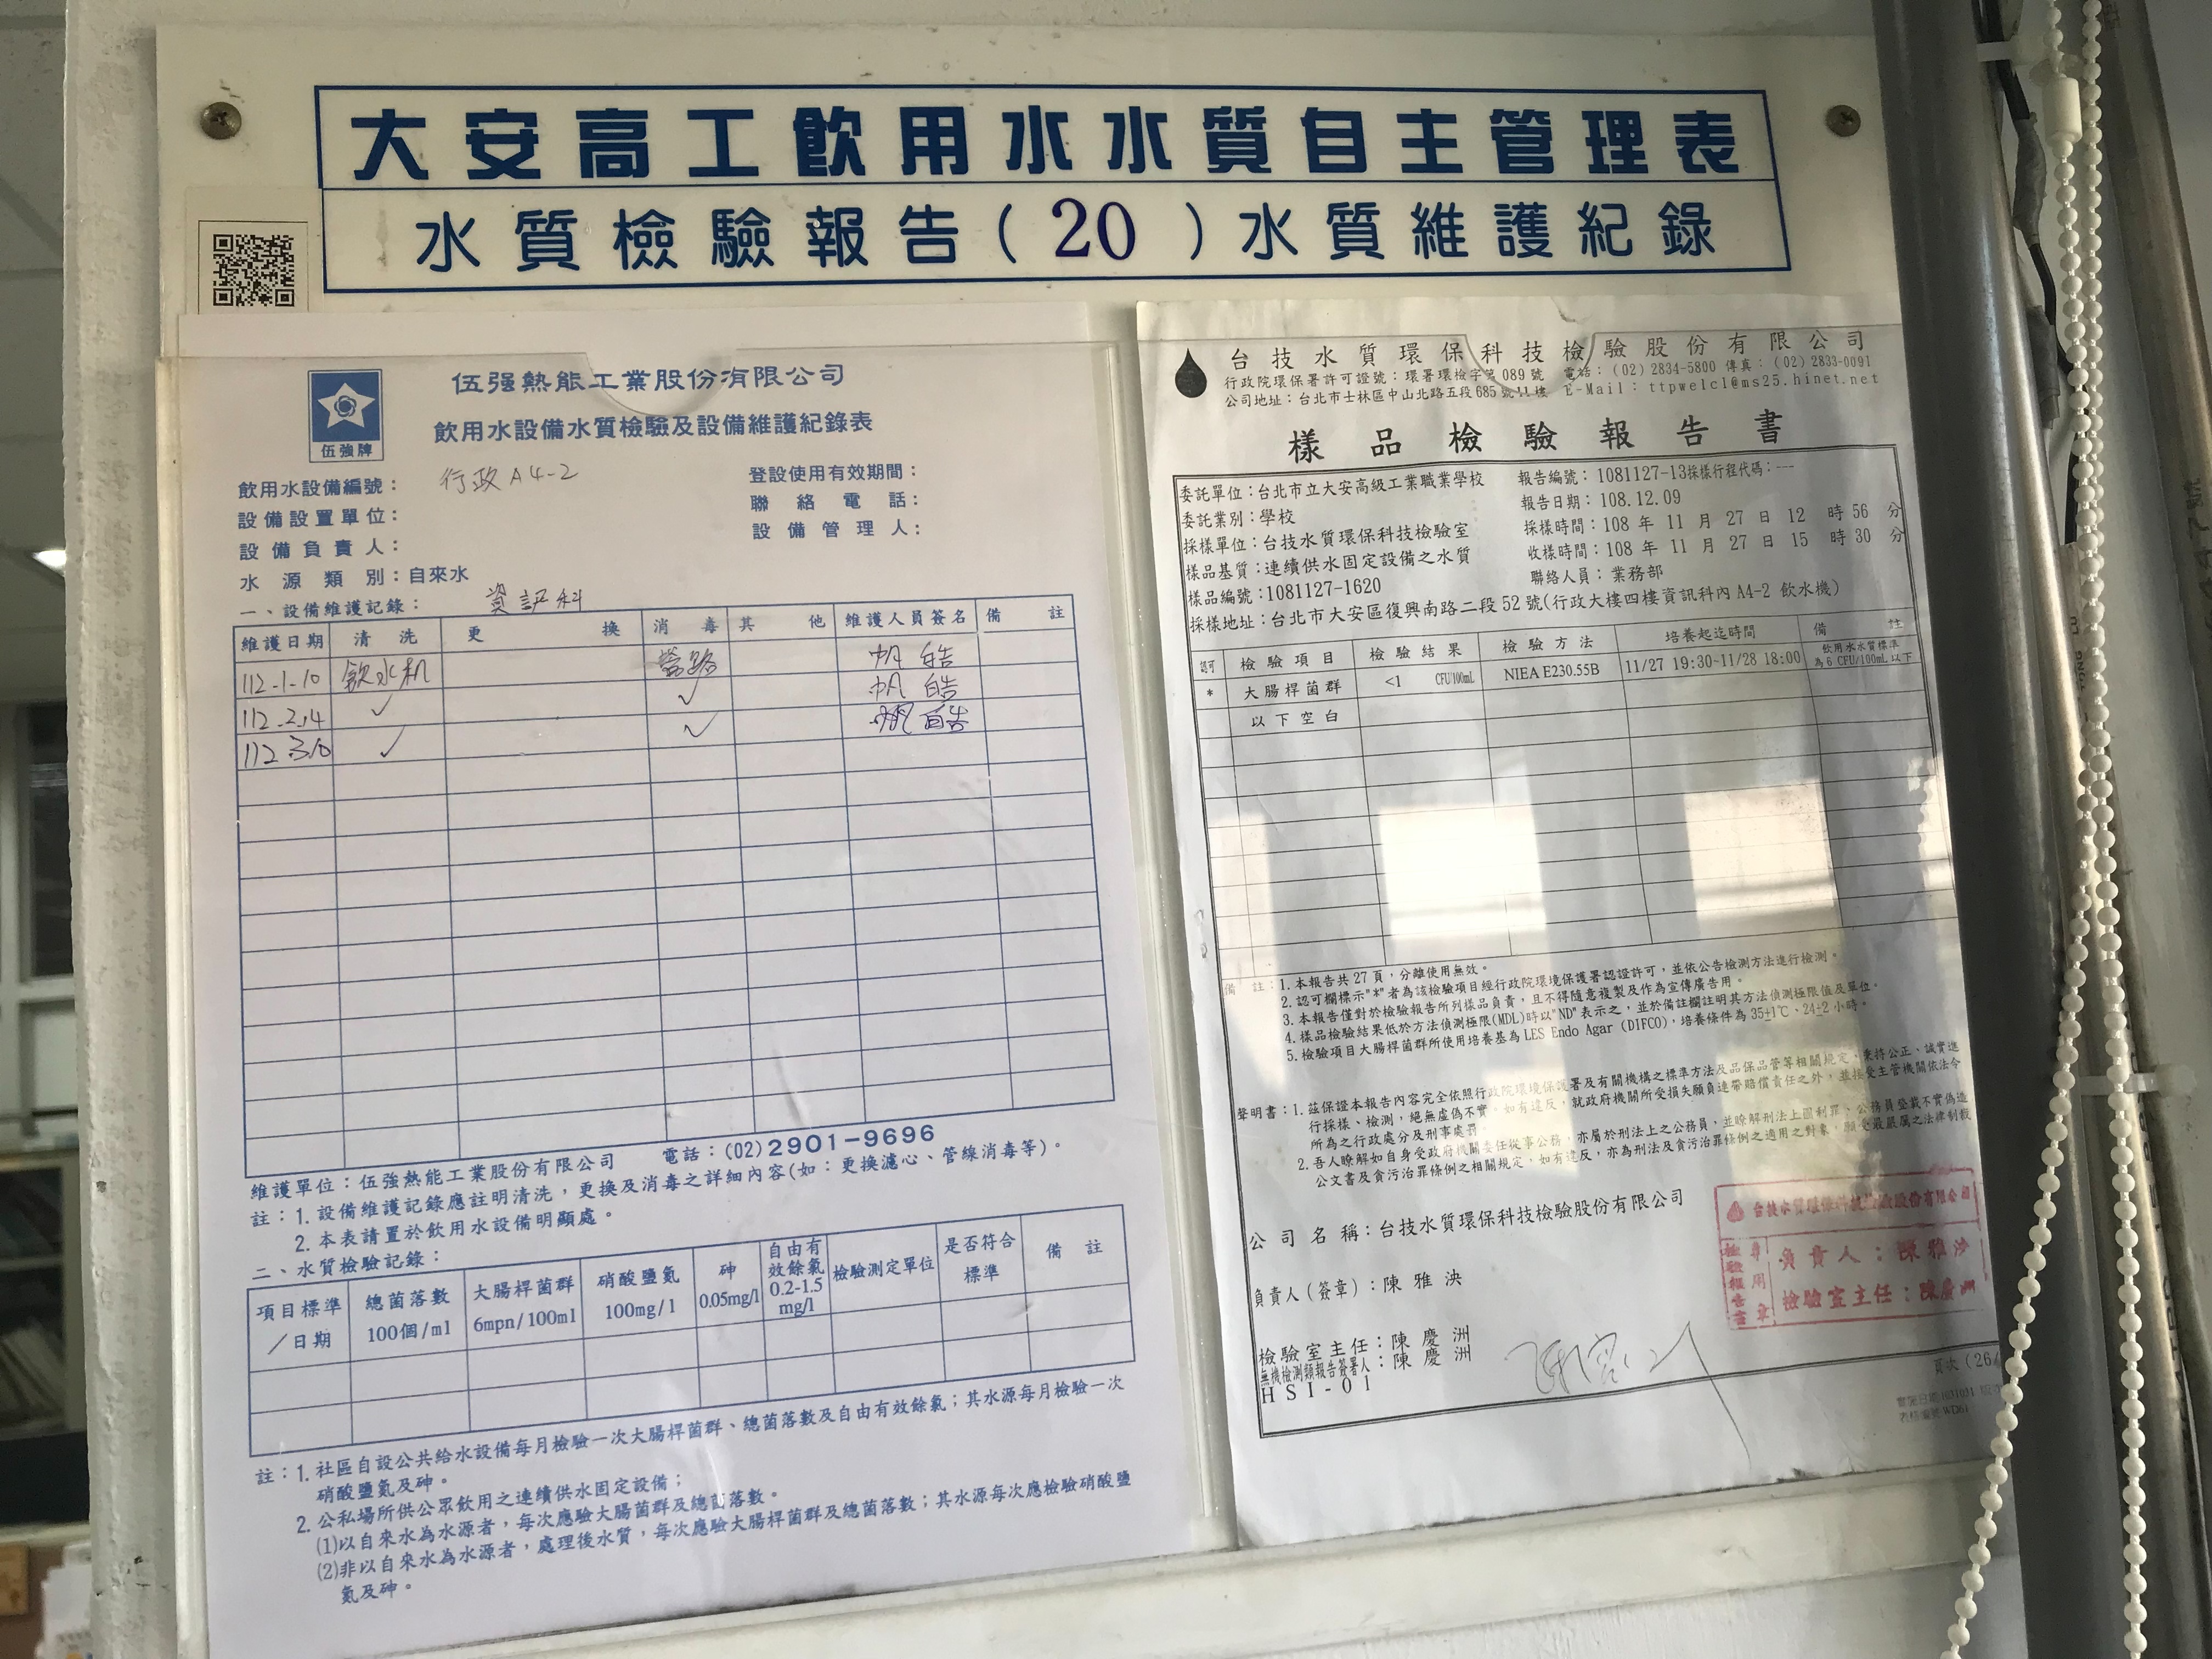 大安高工飲用水水質自主管理表
水質檢驗報告(20)水質維護紀錄
伍强熱能工業股份有限公司
飲用水設備水質檢驗及設備維護紀錄表
伍強牌
飲用水設備編號： 行政A4-2
登設使用有效期間：
設備設置單位：
聯絡電話：
設備負責人：
設備管理人：
水源類別：自來水
一、設備維護記錄： 資訊科
維護日期 清洗 更換 消毒 其他 維護人員簽名 備註
112-1-10 飲水机 管路
112.2.14 ✓ ✓
112.3.10 ✓ ✓
維護單位：伍強熱能工業股份有限公司 電話：(02)2901-9696
註：1. 設備維護記錄應註明清洗，更換及消毒之詳細內容(如：更換濾心、管線消毒等)。
2. 本表請置於飲用水設備明顯處。
二、水質檢驗記錄：
項目標準／日期 總菌落數100個/ml 大腸桿菌群6mpn/100ml 硝酸鹽氮100mg/l 砷0.05mg/l 自由有效餘氯0.2-1.5mg/l 檢驗測定單位 是否符合標準 備註
註：1. 社區自設公共給水設備每月檢驗一次大腸桿菌群、總菌落數及自由有效餘氯；其水源每月檢驗一次
硝酸鹽氮及砷。
2. 公私場所供公眾飲用之連續供水固定設備；
(1)以自來水為水源者，每次應驗大腸菌群及總菌落數。
(2)非以自來水為水源者，處理後水質，每次應驗大腸桿菌群及總菌落數；其水源每次應檢驗硝酸鹽
氮及砷。
台技水質環保科技檢驗股份有限公司
行政院環保署許可證號：環署環檢字第089號 電話：(02)2834-5800 傳真：(02)2833-0091
公司地址：台北市士林區中山北路五段685號11樓 E-Mail：ttpwelcl@ms25.hinet.net
樣品檢驗報告書
委託單位：台北市立大安高級工業職業學校 報告編號：1081127-13採樣行程代碼：---
委託業別：學校 報告日期：108.12.09
採樣單位：台技水質環保科技檢驗室 採樣時間：108年11月27日12時56分
樣品基質：連續供水固定設備之水質 收樣時間：108年11月27日15時30分
樣品編號：1081127-1620 聯絡人員：業務部
採樣地址：台北市大安區復興南路二段52號(行政大樓四樓資訊科內 A4-2 飲水機)
認可 檢驗項目 檢驗結果 檢驗方法 培養起迄時間 備註
* 大腸桿菌群 <1 CFU/100mL NIEA E230.55B 11/27 19:30~11/28 18:00 飲用水水質標準為6 CFU/100mL以下
以下空白
備註：1. 本報告共27頁，分離使用無效。
2. 認可欄標示"*"者為該檢驗項目經行政院環境保護署認證許可，並依公告檢測方法進行檢測。
3. 本報告僅對於檢驗報告所列樣品負責，且不得隨意複製及作為宣傳廣告用。
4. 樣品檢驗結果低於方法偵測極限(MDL)時以"ND"表示之，並於備註欄註明其方法偵測極限值及單位。
5. 檢驗項目大腸桿菌群所使用培養基為LES Endo Agar (DIFCO)，培養條件為35±1℃、24±2小時。
聲明書：1. 茲保證本報告內容完全依照行政院環境保護署及有關機構之標準方法及品保品管等相關規定，秉持公正、誠實進
行採樣、檢測，絕無虛偽不實，如有違反，就政府機關所受損失願負連帶賠償責任之外，並接受主管機關依法令
所為之行政處分及刑事處罰。
2. 吾人瞭解如自身受政府機關委任從事公務，亦屬於刑法上之公務員，並瞭解刑法上圖利罪、公務員登載不實偽造
公文書及貪污治罪條例之相關規定，如有違反，亦為刑法及貪污治罪條例之適用之對象，願受最嚴厲之法律制裁
公司名稱：台技水質環保科技檢驗股份有限公司
負責人(簽章)：陳雅泱
檢驗室主任：陳慶洲
無機檢測類報告簽署人：陳慶洲
HSI-01
台技水質環保科技檢驗股份有限公司
檢驗報告專用章
負責人：陳雅泱
檢驗室主任：陳慶洲
頁次(26/